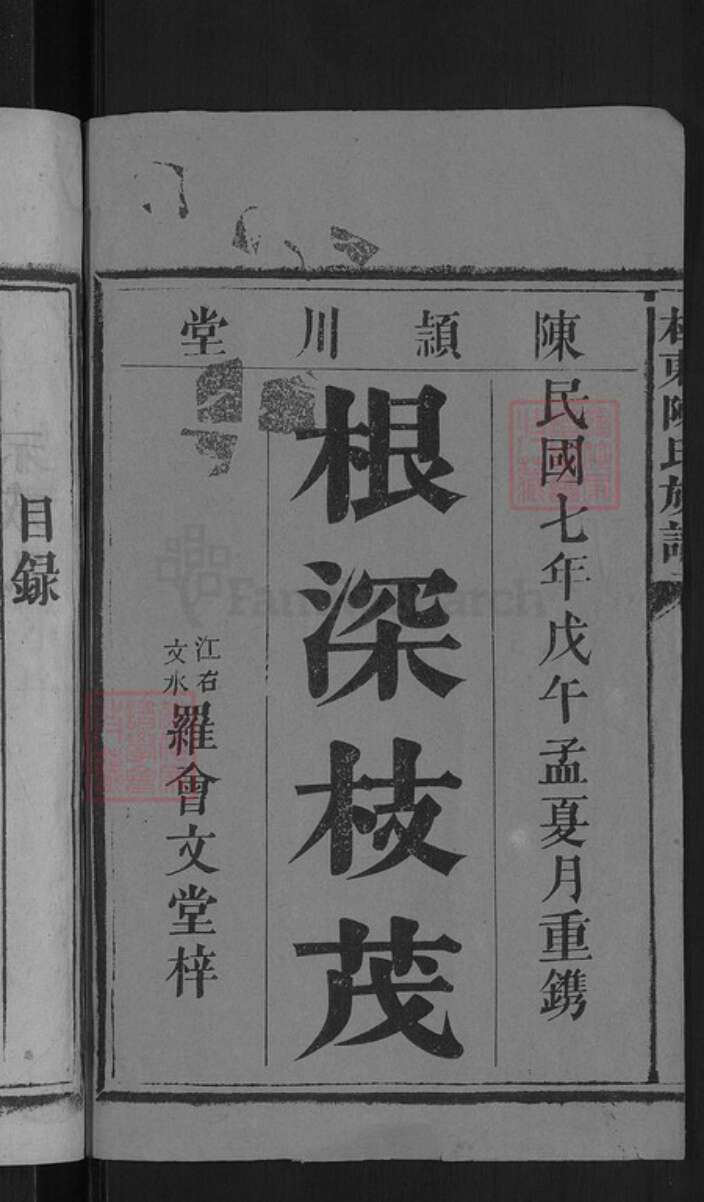 陳氏族譜
陳頴川堂
民國七年戊午孟夏月重鐫
根深枝茂
江右
文水
羅會文堂梓
目録